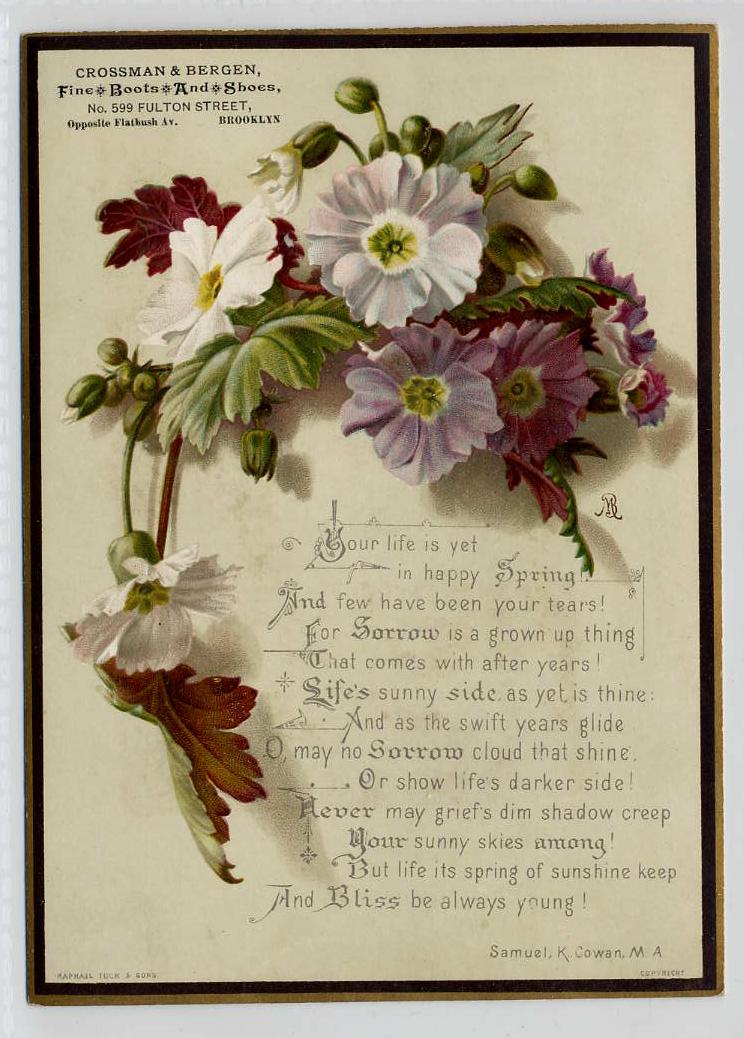 CROSSMAN & BERGEN,
Fine Boots And Shoes,
No. 599 FULTON STREET,
Opposite Flatbush Av. BROOKLYN
Your life is yet
in happy Spring!
And few have been your tears!
For Sorrow is a grown up thing
That comes with after years!
Life's sunny side, as yet, is thine:
And as the swift years glide
O, may no Sorrow cloud that shine,
Or show life's darker side!
Never may grief's dim shadow creep
Your sunny skies among!
But life its spring of sunshine keep
And Bliss be always young!
Samuel, K. Cowan, M. A
RAPHAEL TUCK & SONS
COPYRIGHT